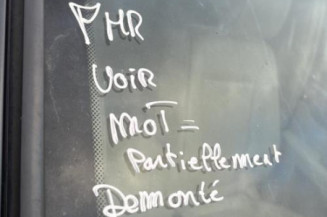 PMR
VOIR
MOT =
Partiellement
Demonté